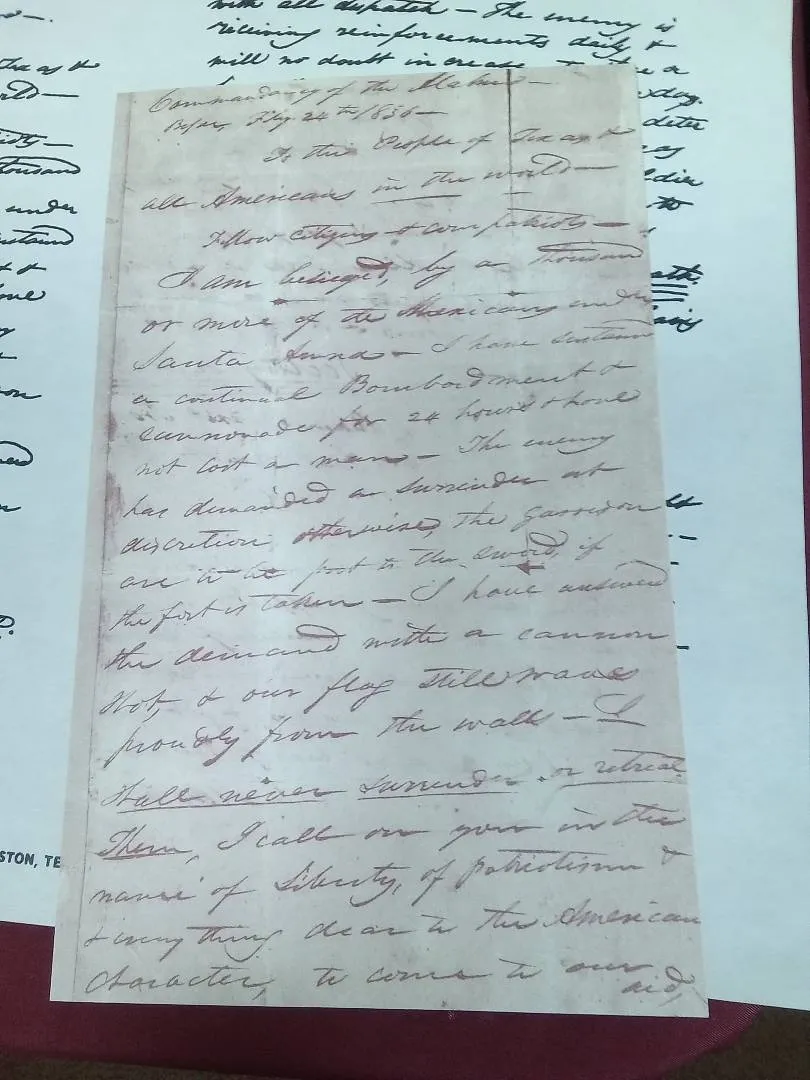 with all dispatch — The enemy is
receiving reinforcements daily &
will no doubt increase to
Commandancy of the Alamo—
Bejar, Fby. 24th 1836—
To the People of Texas &
all Americans in the world—
Fellow citizens & compatriots—
I am besieged, by a thousand
or more of the Mexicans under
Santa Anna — I have sustained
a continual Bombardment &
cannonade for 24 hours & have
not lost a man — The enemy
has demanded a surrender at
discretion, otherwise, the garrison
are to be put to the sword, if
the fort is taken — I have answered
the demand with a cannon
shot, & our flag still waves
proudly from the walls — I
shall never surrender or retreat
Then, I call on you in the
name of Liberty, of patriotism &
& every thing dear to the American
character, to come to our
aid,
STON, TE